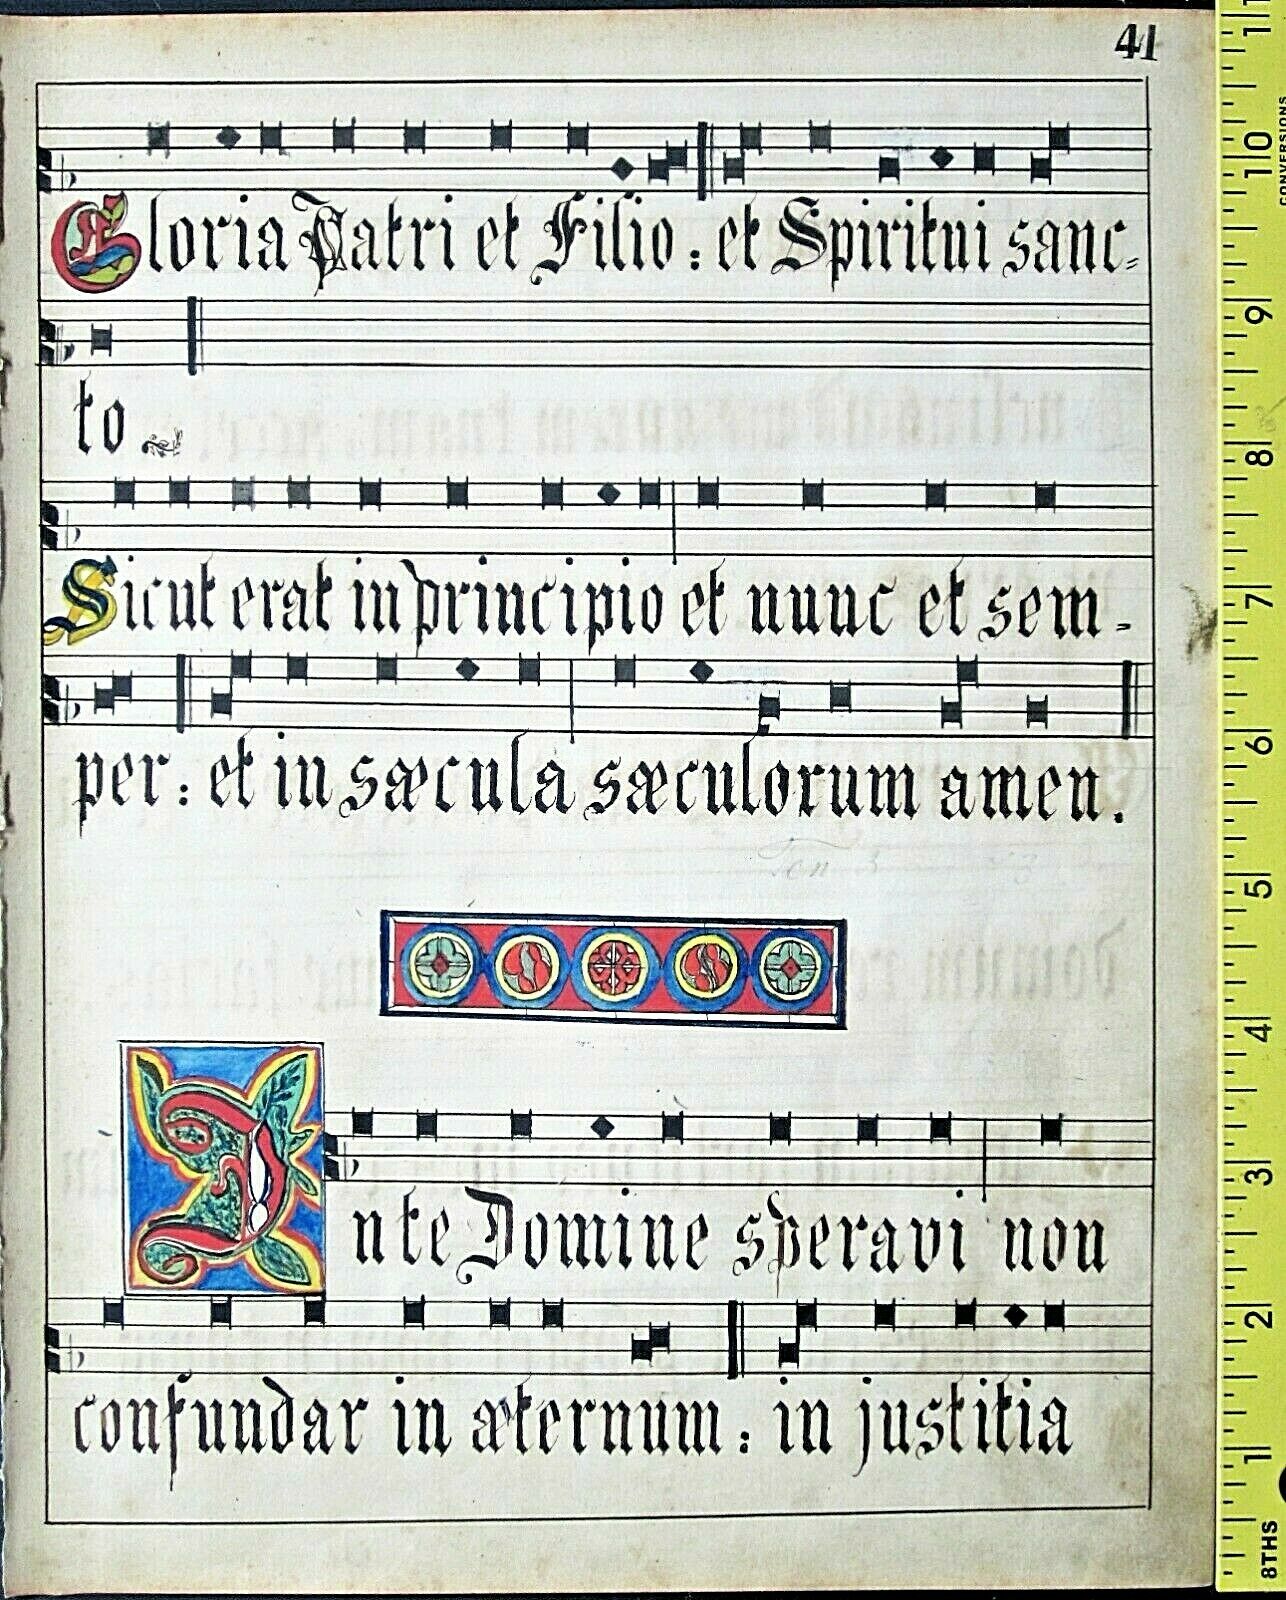 41
Gloria Patri et Filio : et Spiritui sanc-
to
Sicut erat in principio et nunc et sem-
per : et in sæcula sæculorum amen.
Inte Domine speravi non
confundar in æternum : in justitia
11
10
9
8
7
6
5
4
3
2
1
8THS
CONVERSIONS